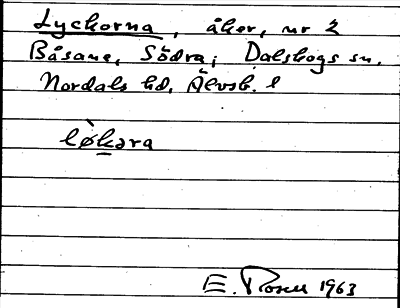 Lyckorna, åker, nr 2
Båsane, Södra; Dalskogs sn.
Nordals hd, Älvsb. l
lø̀kəra
E. Rosell 1963